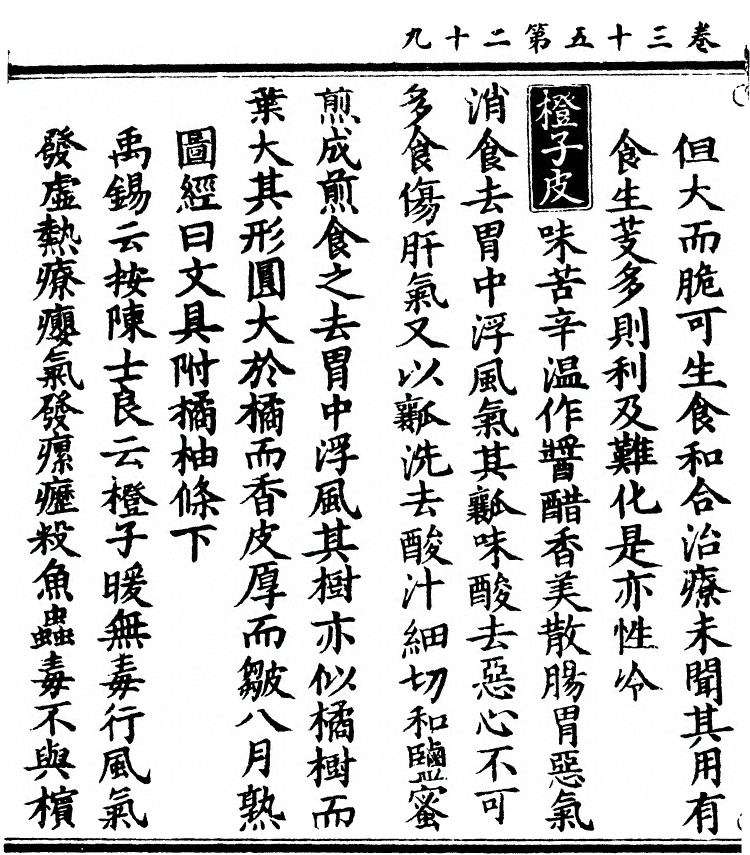 卷三十五第二十九
但大而脆可生食和合治療未聞其用有
食生芰多則利及難化是亦性冷
橙子皮味苦辛溫作醬醋香美散腸胃惡氣
消食去胃中浮風氣其瓤味酸去惡心不可
多食傷肝氣又以瓤洗去酸汁細切和鹽蜜
煎成煎食之去胃中浮風其樹亦似橘樹而
葉大其形圓大於橘而香皮厚而皺八月熟
圖經曰文具附橘柚條下
禹錫云按陳士良云橙子暖無毒行風氣
發虛熱療癭氣發瘰癧殺魚蟲毒不與檳